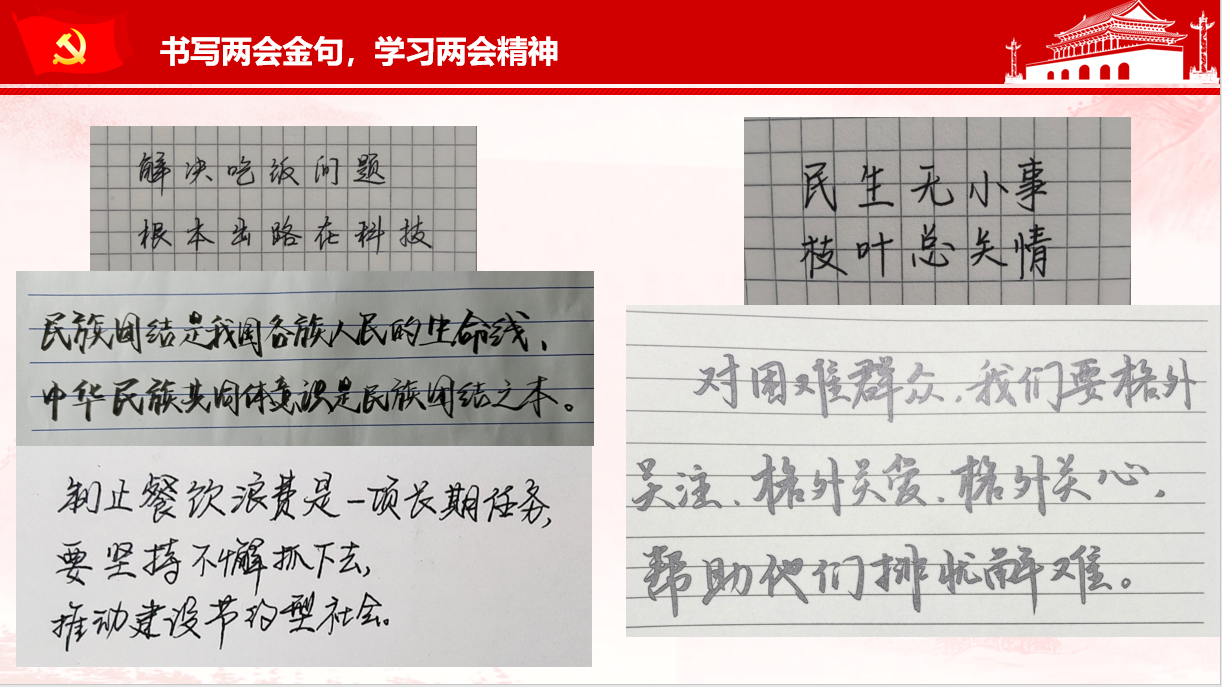 书写两会金句，学习两会精神
解决吃饭问题
根本出路在科技
民族团结是我国各族人民的生命线、
中华民族共同体意识是民族团结之本。
制止餐饮浪费是一项长期任务,
要坚持不懈抓下去,
推动建设节约型社会。
民生无小事
枝叶总关情
对困难群众，我们要格外
关注、格外关爱、格外关心，
帮助他们排忧解难。